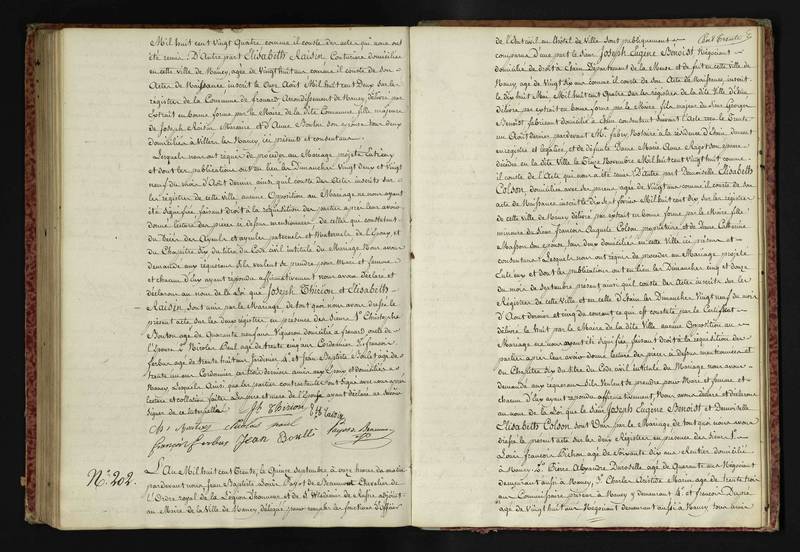 Mil huit cent Vingt Quatre comme il conste des actes qui nous ont
été remis: D'autre part Elisabeth Raisin Couturiere domiciliée
en cette Ville de Nancy, agée de Vingt huit ans comme il conste de son
Acte de Naissance inscrit le onze Août mil huit cent Deux sur le
registre de la Commune de Frouard arrondissement de Nancy délivré par
Extrait en bonne forme par le Maire de la dite Commune, fille majeure
de Joseph Raisin, et d'Anne son épouse tous deux
domiciliés à Villers les Nancy, ici présents et consentans.
Lesquels nous ont requis de procéder au Mariage projeté entr'eux
et dont les publications ont eu lieu les Dimanches Vingt deux et Vingt
neuf du mois d'Août dernier ainsi qu'il conste des Actes inscrits sur
les registres de cette Ville; aucune Opposition au Mariage ne nous ayant
été signifiée, faisant droit à la réquisition des parties après leur avoir
donné lecture des pièces ci dessus mentionnées, de celles qui constatent
du Décès des Ayeuls et ayeules paternels et Maternels de l'Epoux, et
du Chapitre six du titre du Code civil intitulé du Mariage Nous avons
demandé aux requérans s'ils veulent se prendre pour Mari et femme
et chacun d'Eux ayant répondu affirmativement nous avons déclaré et
déclarons au nom de la Loi que Joseph Thirion et Elisabeth
Raisin sont unis par le Mariage, de tout quoi nous avons dressé le
présent acte sur les deux registres en présence des Sieurs 1°. Christophe
Bouton agé de Quarante neuf ans Vigneron domicilié à Frouard oncle de
l'Epouse 2°. Nicolas Paul agé de trente cinq ans Cordonnier 3°. françois
ferbus agé de trente huit ans Jardinier 4°. et Jean Baptiste Boulet agé de
trente un ans Cordonnier ces trois derniers amis aux Epoux et domiciliés à
Nancy, Lesquels Ainsi que les parties contractantes ont signé avec nous après
lecture et collation faites. Les père et mère de l'Epouse ayant déclaré ne savoir
signer de ce interpellés.
Jh. Thirion Eth Raisin
Nicolas paul
françois ferbus Jean Boulet
N°. 202.
L'An Mil huit cent Trente, le Quinze Septembre à onze heures du matin
pardevant nous, Jean Baptiste Louis Payot de Beaumont Chevalier de
l'Ordre royal de la Légion d'honneur et de St. Wladimir de Russie adjoint
au Maire de la Ville de Nancy, délégué pour remplir les fonctions d'Officier
de l'Etat civil au Hôtel de Ville sont publiquement
comparus d'une part le Sieur Joseph Eugène Benoist Négociant
domicilié de droit à Département de la Meuse et de fait en cette ville de
Nancy agé de Vingt Six ans comme il conste de son Acte de Naissance, inscrit
le Dix huit Mai Mil huit cent Quatre sur les registres de la dite Ville
délivré par extrait en bonne forme par le Maire, fils majeur de Sieur Georges
Benoist fabricant domicilié à consentant suivant l'Acte reçu le Trente
un Août dernier pardevant Me. Fabry, Notaire à la résidence dument
enregistré et légalisé, et de défunte Dame Marie Anne son épouse
décédée en la dite Ville le Novembre Mil huit cent vingt huit comme
il conste de l'Acte qui nous a été remis. D'autre part Demoiselle Elisabeth
Colson, domiciliée avec ses père et mère, agée de Vingt ans comme il conste de son
acte de Naissance inscrit le Dix Sept février Mil huit cent Dix sur les registres
de cette ville de Nancy délivré par extrait en bonne forme par le Maire, fille
mineure du Sieur françois Auguste Colson propriétaire et de Dame Catherine
Masson son épouse, tous deux domiciliés en cette Ville ici présens et
consentans. Lesquels nous ont requis de procéder au Mariage projeté
entr'eux et dont les publications ont eu lieu les Dimanches cinq et douze
du mois de Septembre présent ainsi qu'il conste des Actes inscrits sur les
Registres de cette Ville et en celle les Dimanches Vingt neuf du mois
d'Août dernier et cinq du courant ce qui est constaté par le Certificat
délivré le huit par le Maire de la dite Ville aucune Opposition au
Mariage ne nous ayant été signifiée, faisant droit à la réquisition des
parties après leur avoir donné lecture des pièces ci dessus mentionnées et
du Chapitre Six du titre du Code civil intitulé du Mariage nous avons
demandé aux requérans s'ils veulent se prendre pour Mari et femme et
chacun d'Eux ayant répondu affirmativement, Nous avons déclaré et déclarons
au nom de la Loi que le Sieur Joseph Eugène Benoist et Demoiselle
Elisabeth Colson, sont Unis par le Mariage, de tout quoi nous avons
dressé le présent acte sur les deux Registres en présence des Sieurs 1°.
Louis françois Pichon agé de Soixante dix ans Rentier domicilié
à Nancy, 2°. Pierre Alexandre agé de Quarante ans Négociant
demeurant aussi à Nancy, 3°. Charles agé de trente trois
ans Commissaire priseur à Nancy y demeurant 4°. et françois Dupré
agé de Vingt huit ans Négociant demeurant aussi à Nancy tous amis